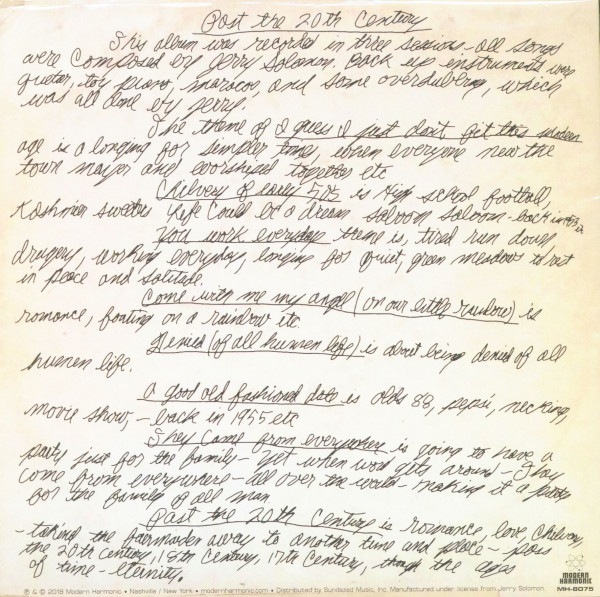 Past the 20th Century
This album was recorded in three sessions - all songs
were composed by Jerry Solomon. Back up instruments were
guetar, toy piano, maracos, and some overdubing, which
was all done by Jerry.
The theme of I guess I just don't fit this modern
age is a longing for simpler times, when everyone new the
town mayor and worshiped together etc
Chilvery of early 50's is High school football,
Kashmier sweaters Life Could be a dream saboom saboom - back in
You work everyday theme is, tired run down,
drugery, working everyday, longing for quiet, green meadows to rest
in peace and solitude.
Come with me my angel (on our little rainbow) is
romance, floating on a rainbow etc.
Denied (of all human life) is about being denied of all
human life.
A good old fashioned date is olds 88, pepsi, necking,
movie show, - back in 1955 etc
They came from everywhere is going to have a
party just for the family - yet when word gets around - They
come from everywhere - all over the world - making it a party
for the family of all man
Past the 20th Century is romance, love, Chilvery
- taking the listener away to another time and place - pass
the 20th Century, 18th Century, 17th Century, though the ages
of time - eternity.
℗ & © 2018 Modern Harmonic • Nashville / New York • modernharmonic.com • Distributed by Sundazed Music, Inc. Manufactured under license from Jerry Solomon.
MODERN
HARMONIC
MH-8075